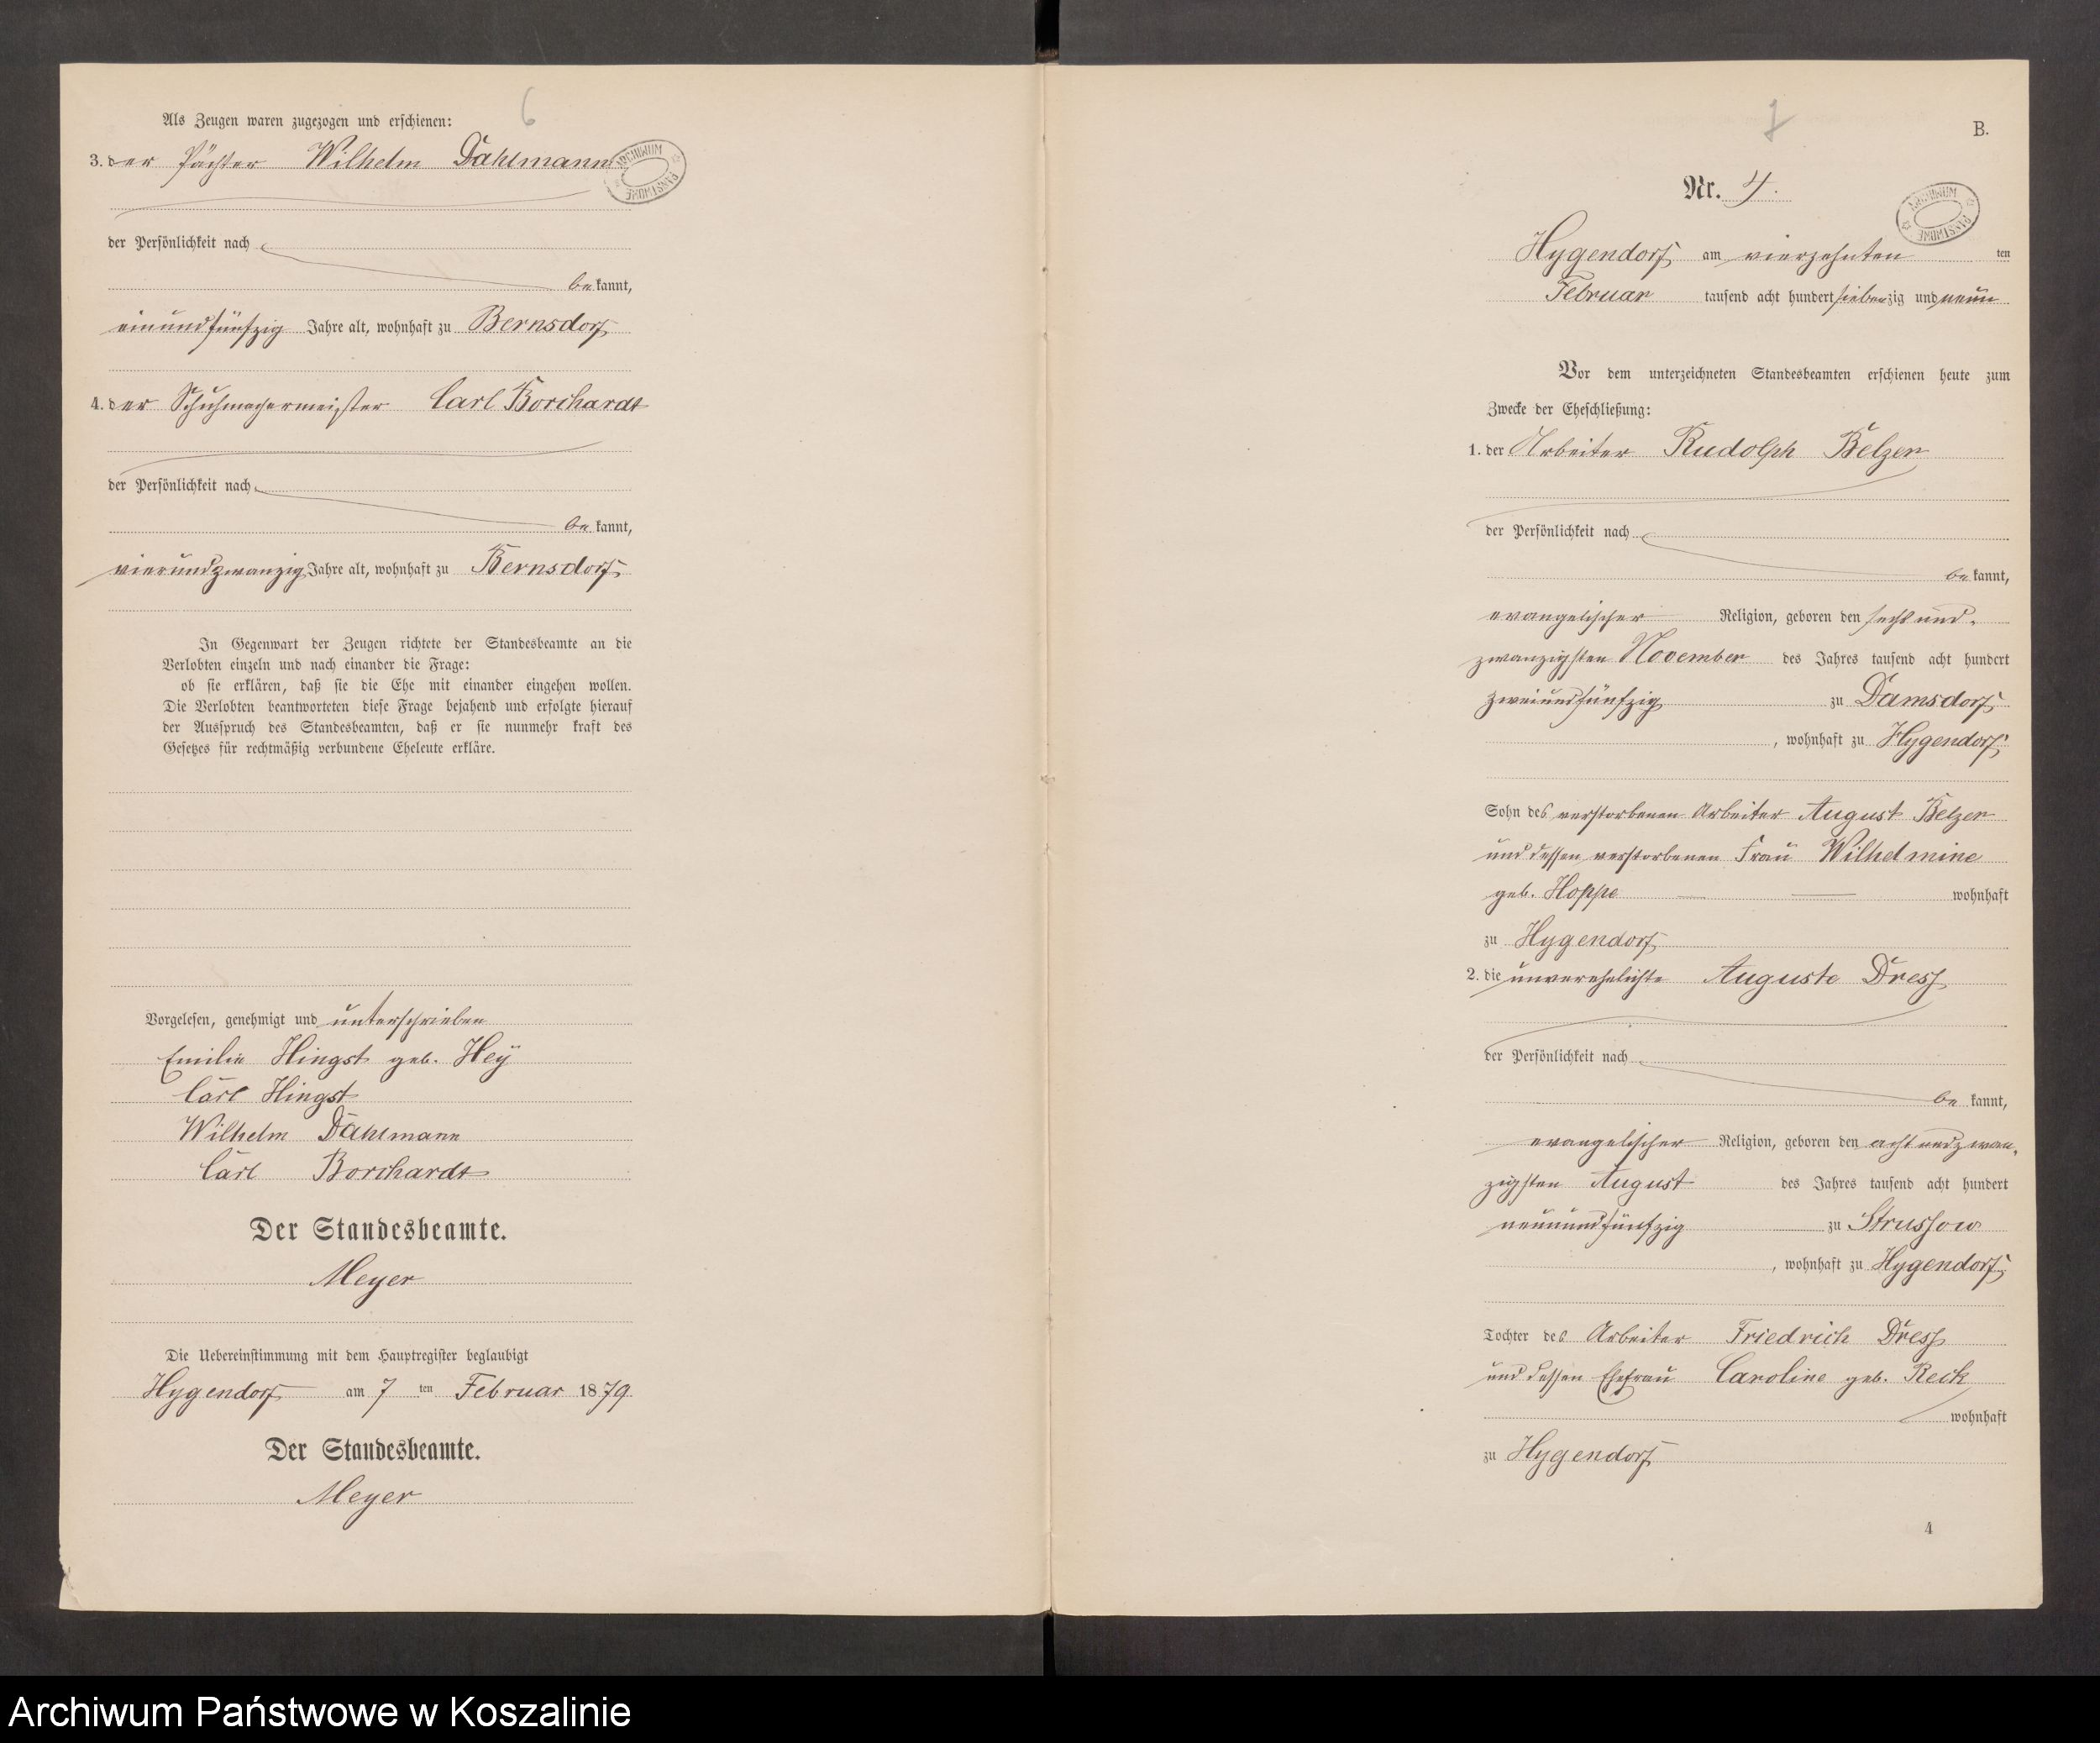 6
Als Zeugen waren zugezogen und erschienen:
3. der Pächter Wilhelm Dahlmann
ARCHIWUM PAŃSTWOWE
der Persönlichkeit nach
be kannt,
einundfünfzig Jahre alt, wohnhaft zu Bernsdorf
4. der Schuhmachermeister Carl Borchardt
der Persönlichkeit nach
be kannt,
vierundzwanzig Jahre alt, wohnhaft zu Bernsdorf
In Gegenwart der Zeugen richtete der Standesbeamte an die
Verlobten einzeln und nach einander die Frage:
ob sie erklären, daß sie die Ehe mit einander eingehen wollen.
Die Verlobten beantworteten diese Frage bejahend und erfolgte hierauf
der Ausspruch des Standesbeamten, daß er sie nunmehr kraft des
Gesetzes für rechtmäßig verbundene Eheleute erkläre.
Vorgelesen, genehmigt und unterschrieben
Emilie Hingst geb. Hey
Carl Hingst
Wilhelm Dahlmann
Carl Borchardt
Der Standesbeamte.
Meyer
Die Uebereinstimmung mit dem Hauptregister beglaubigt
Hygendorf am 7 ten Februar 1879.
Der Standesbeamte.
Meyer
7
B.
Nr. 4.
ARCHIWUM PAŃSTWOWE
Hygendorf am vierzehnten ten
Februar tausend acht hundert siebenzig und neun
Vor dem unterzeichneten Standesbeamten erschienen heute zum
Zwecke der Eheschließung:
1. der Arbeiter Rudolph Belzer
der Persönlichkeit nach
be kannt,
evangelischer Religion, geboren den sechsund-
zwanzigsten November des Jahres tausend acht hundert
zweiundfünfzig zu Damsdorf
, wohnhaft zu Hygendorf
Sohn des verstorbenen Arbeiter August Belzer
und dessen verstorbenen Frau Wilhelmine
geb. Hoppe wohnhaft
zu Hygendorf
2. die unverehelichte Auguste Dress
der Persönlichkeit nach
be kannt,
evangelischer Religion, geboren den achtundzwan-
zigsten August des Jahres tausend acht hundert
neunundfünfzig zu Strussow
, wohnhaft zu Hygendorf
Tochter des Arbeiter Friedrich Dress
und dessen Ehefrau Caroline geb. Reck
wohnhaft
zu Hygendorf
4
Archiwum Państwowe w Koszalinie